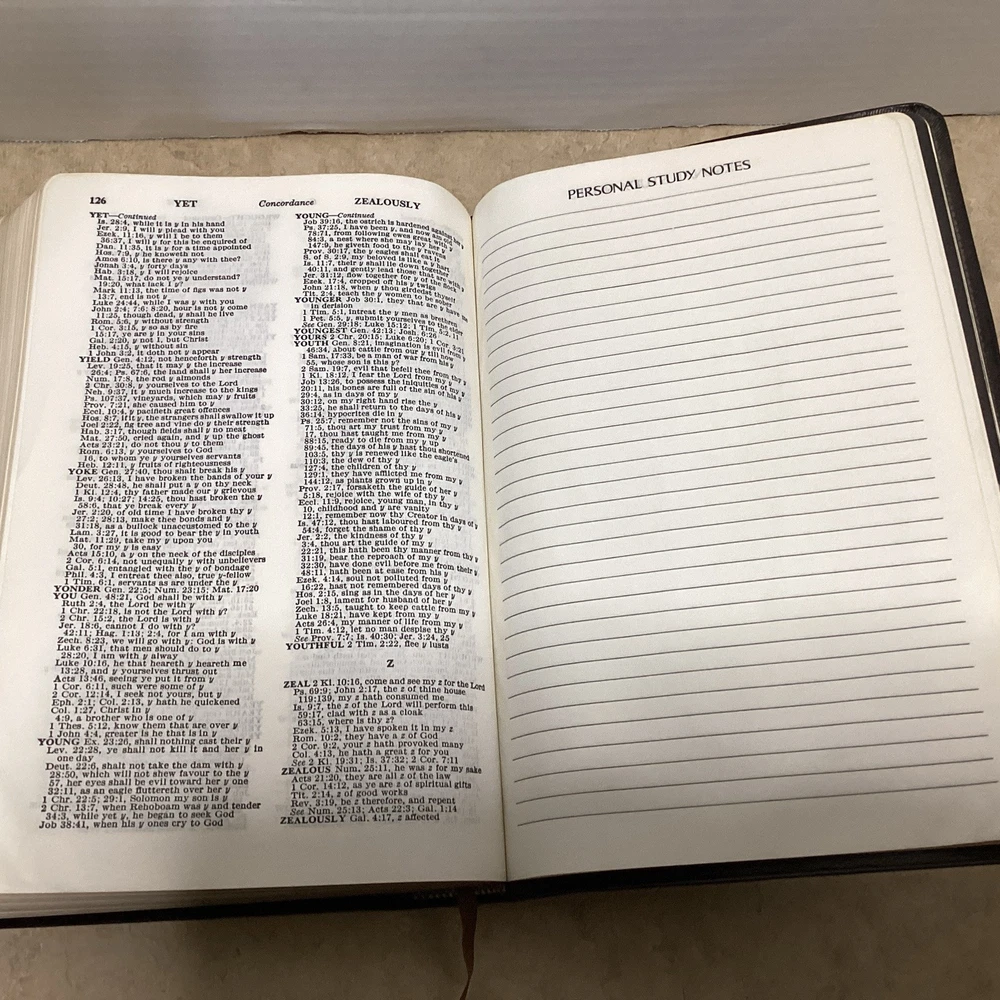 126 YET Concordance ZEALOUSLY
YET—Continued
Is. 28:4, while it is y in his hand
Jer. 2:9, I will y plead with you
Ezek. 11:16, y will I be to them
36:37, I will y for this be enquired of
Dan. 11:35, it is y for a time appointed
Hos. 7:9, y he knoweth not
Amos 6:10, is there y any with thee?
Jonah 3:4, y forty days
Hab. 3:18, y I will rejoice
Mat. 15:17, do not ye y understand?
19:20, what lack I y?
Mark 11:13, the time of figs was not y
13:7, end is not y
Luke 24:44, while I was y with you
John 2:4; 7:6; 8:20, hour is not y come
11:25, though dead, y shall he live
Rom. 5:6, y without strength
1 Cor. 3:15, y so as by fire
15:17, ye are y in your sins
Gal. 2:20, y not I, but Christ
Heb. 4:15, y without sin
1 John 3:2, it doth not y appear
YIELD Gen. 4:12, not henceforth y strength
Lev. 19:25, that it may y the increase
26:4; Ps. 67:6, the land shall y her increase
Num. 17:8, the rod y almonds
2 Chr. 30:8, y yourselves to the Lord
Neh. 9:37, it y much increase to the kings
Ps. 107:37, vineyards, which may y fruits
Prov. 7:21, she caused him to y
Eccl. 10:4, y pacifieth great offences
Hos. 8:7, if it y, the strangers shall swallow it up
Joel 2:22, fig tree and vine do y their strength
Hab. 3:17, though fields shall y no meat
Mat. 27:50, cried again, and y up the ghost
Acts 23:21, do not thou y to them
Rom. 6:13, y yourselves to God
16, to whom ye y yourselves servants
Heb. 12:11, y fruits of righteousness
YOKE Gen. 27:40, thou shalt break his y
Lev. 26:13, I have broken the bands of your y
Deut. 28:48, he shall put a y on thy neck
1 Ki. 12:4, thy father made our y grievous
Is. 9:4; 10:27; 14:25, thou hast broken the y
58:6, that ye break every y
Jer. 2:20, of old time I have broken thy y
27:2; 28:13, make thee bonds and y
31:18, as a bullock unaccustomed to the y
Lam. 3:27, it is good to bear the y in youth
Mat. 11:29, take my y upon you
30, for my y is easy
Acts 15:10, a y on the neck of the disciples
2 Cor. 6:14, not unequally y with unbelievers
Gal. 5:1, entangled with the y of bondage
Phil. 4:3, I entreat thee also, true y-fellow
1 Tim. 6:1, servants as are under the y
YONDER Gen. 22:5; Num. 23:15; Mat. 17:20
YOU Gen. 48:21, God shall be with y
Ruth 2:4, the Lord be with y
1 Chr. 22:18, is not the Lord with y?
2 Chr. 15:2, the Lord is with y
Jer. 18:6, cannot I do with y?
42:11; Hag. 1:13; 2:4, for I am with y
Zech. 8:23, we will go with y: God is with y
Luke 6:31, that men should do to y
28:20, I am with y alway
Luke 10:16, he that heareth y heareth me
13:28, and y yourselves thrust out
Acts 13:46, seeing ye put it from y
1 Cor. 6:11, such were some of y
2 Cor. 12:14, I seek not yours, but y
Eph. 2:1; Col. 2:13, y hath he quickened
Col. 1:27, Christ in y
4:9, a brother who is one of y
1 Thes. 5:12, know them that are over y
1 John 4:4, greater is he that is in y
YOUNG Ex. 23:26, shall nothing cast their y
Lev. 22:28, ye shall not kill it and her y in
one day
Deut. 22:6, shalt not take the dam with y
28:50, which will not shew favour to the y
57, her eyes shall be evil toward her y one
32:11, as an eagle fluttereth over her y
1 Chr. 22:5; 29:1, Solomon my son is y
2 Chr. 13:7, when Rehoboam was y and tender
34:3, while yet y, he began to seek God
Job 38:41, when his y ones cry to God
YOUNG—Continued
Job 39:16, the ostrich is hardened against her y
Ps. 37:25, I have been y, and now am old
78:71, from following ewes great with y
84:3, a nest where she may lay her y
147:9, he giveth food to the y ravens
Prov. 30:17, the y eagles shall eat it
S. of S. 2:9, my beloved is like a y hart
Is. 11:7, their y shall lie down together
40:11, and gently lead those that are with y
Jer. 31:12, flow together for y of the flock
Ezek. 17:4, cropped off his y twigs
John 21:18, when y thou girdedst thyself
Tit. 2:4, teach the y women to be sober
YOUNGER Job 30:1, they that are y have me
in derision
1 Tim. 5:1, intreat the y men as brethren
1 Pet. 5:5, y, submit yourselves to the elder
See Gen. 29:18; Luke 15:12; 1 Tim. 5:2, 11
YOUNGEST Gen. 42:13; Josh. 6:26
YOURS 2 Chr. 20:15; Luke 6:20; 1 Cor. 3:21
YOUTH Gen. 8:21, imagination is evil from y
46:34, about cattle from our y till now
1 Sam. 17:33, he a man of war from his y
55, whose son is this y?
2 Sam. 19:7, evil that befell thee from thy y
1 Ki. 18:12, I fear the Lord from my y
Job 13:26, to possess the iniquities of my y
20:11, his bones are full of the sin of his y
29:4, as in days of my y
30:12, on my right hand rise the y
33:25, he shall return to the days of his y
36:14, hypocrites die in y
Ps. 25:7, remember not the sins of my y
71:5, thou art my trust from my y
17, thou hast taught me from my y
88:15, ready to die from my y up
89:45, the days of his y hast thou shortened
103:5, thy y is renewed like the eagle's
110:3, the dew of thy y
127:4, the children of thy y
129:1, they have afflicted me from my y
144:12, as plants grown up in y
Prov. 2:17, forsaketh the guide of her y
5:18, rejoice with the wife of thy y
Eccl. 11:9, rejoice, young man, in thy y
10, childhood and y are vanity
12:1, remember now thy Creator in days of y
Is. 47:12, thou hast laboured from thy y
54:4, forget the shame of thy y
Jer. 2:2, the kindness of thy y
3:4, thou art the guide of my y
22:21, this hath been thy manner from thy y
31:19, bear the reproach of my y
32:30, have done evil before me from their y
48:11, hath been at ease from his y
Ezek. 4:14, soul not polluted from y
16:22, hast not remembered days of thy y
Hos. 2:15, sing as in the days of her y
Joel 1:8, lament for husband of her y
Zech. 13:5, taught to keep cattle from my y
Luke 18:21, have kept from my y
Acts 26:4, my manner of life from my y
1 Tim. 4:12, let no man despise thy y
See Prov. 7:7; Is. 40:30; Jer. 3:24, 25
YOUTHFUL 2 Tim. 2:22, flee y lusts
Z
ZEAL 2 Ki. 10:16, come and see my z for the Lord
Ps. 69:9; John 2:17, the z of thine house
119:139, my z hath consumed me
Is. 9:7, the z of the Lord will perform this
59:17, clad with z as a cloak
63:15, where is thy z?
Ezek. 5:13, I have spoken it in my z
Rom. 10:2, they have a z of God
2 Cor. 9:2, your z hath provoked many
Col. 4:13, he hath a great z for you
See 2 Ki. 19:31; Is. 37:32; 2 Cor. 7:11
ZEALOUS Num. 25:11, he was z for my sake
Acts 21:20, they are all z of the law
1 Cor. 14:12, as ye are z of spiritual gifts
Tit. 2:14, z of good works
Rev. 3:19, be z therefore, and repent
See Num. 25:13; Acts 22:3; Gal. 1:14
ZEALOUSLY Gal. 4:17, z affected
PERSONAL STUDY NOTES